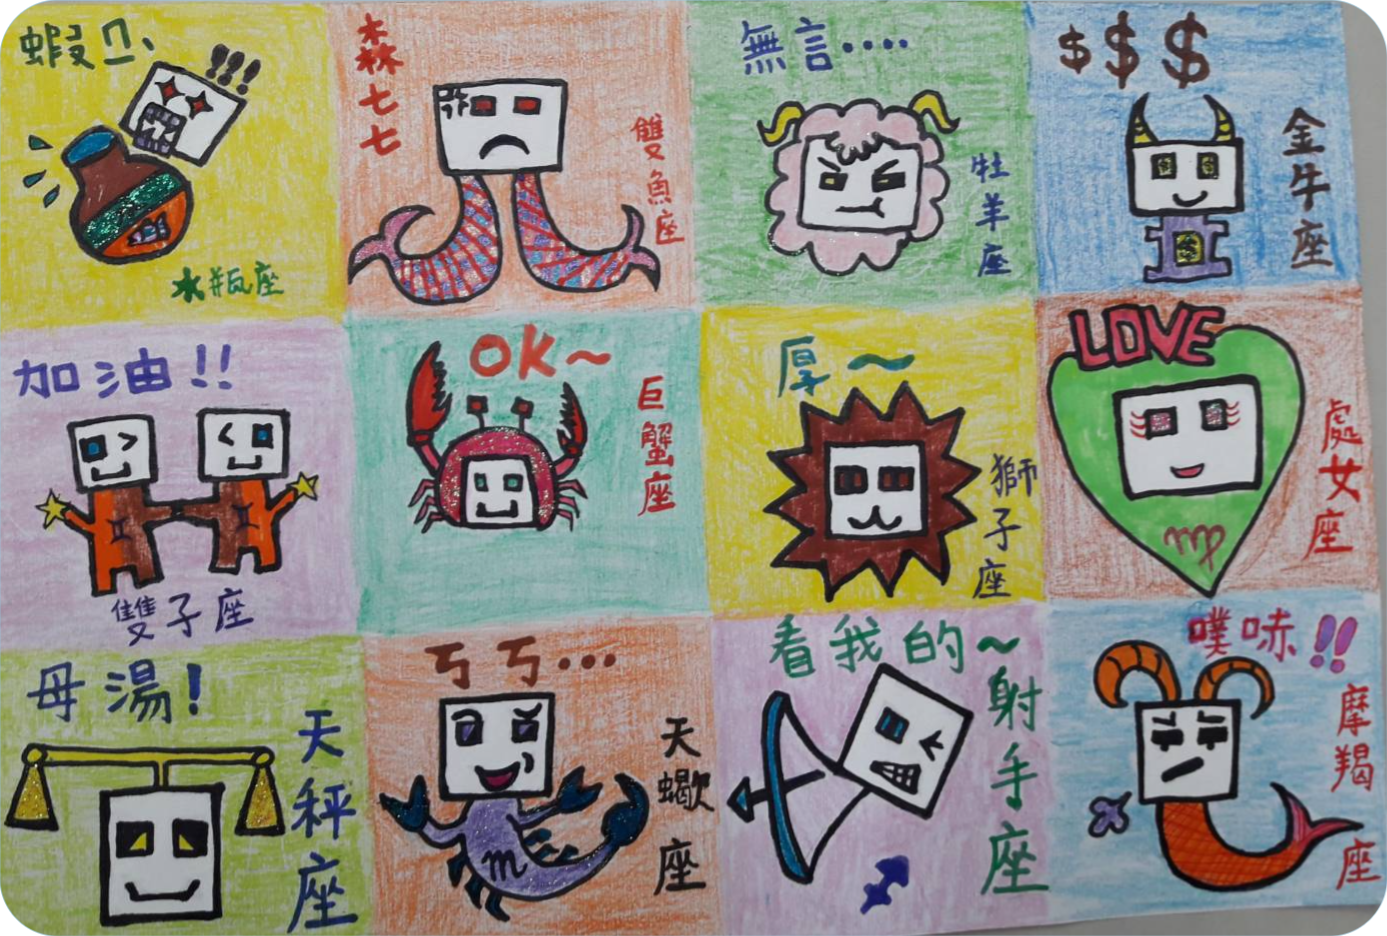 蝦ㄇ、
!!!
水瓶座
森七七
雙魚座
無言....
牡羊座
$$$
金牛座
加油!!
雙子座
OK~
巨蟹座
厚~
獅子座
LOVE
處女座
母湯!
天秤座
ㄎㄎ...
天蠍座
看我的~
射手座
噗哧!!
摩羯座